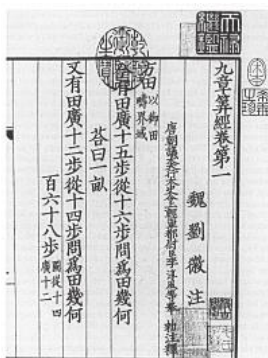 九章算經卷第一
魏劉徽注
唐朝議大夫行太史令上輕車都尉臣李淳風等奉敕注釋
方田以御田疇界域
今有田廣十五步從十六步問爲田幾何
荅曰一畝
又有田廣十二步從十四步問爲田幾何
百六十八步圖從十四廣十二